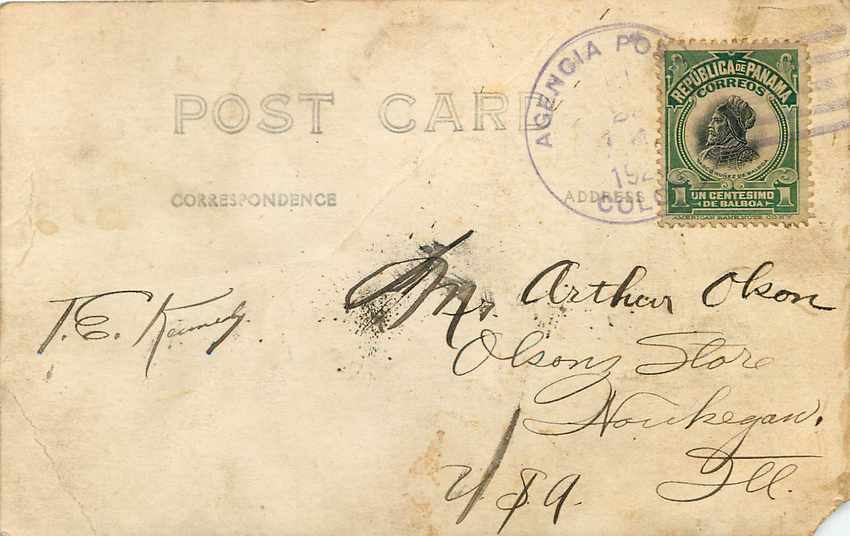 AGENCIA PO
192
COLO
REPÚBLICA DE PANAMA
CORREOS
VASCO NUÑEZ DE BALBOA
1 UN CENTESIMO 1
DE BALBOA
AMERICAN BANK NOTE CO. N.Y.
POST CARD
CORRESPONDENCE
ADDRESS
T. E. Kennedy.
Mr. Arthur Olson
Olsons Store
Waukegan.
Ill.
U S A.